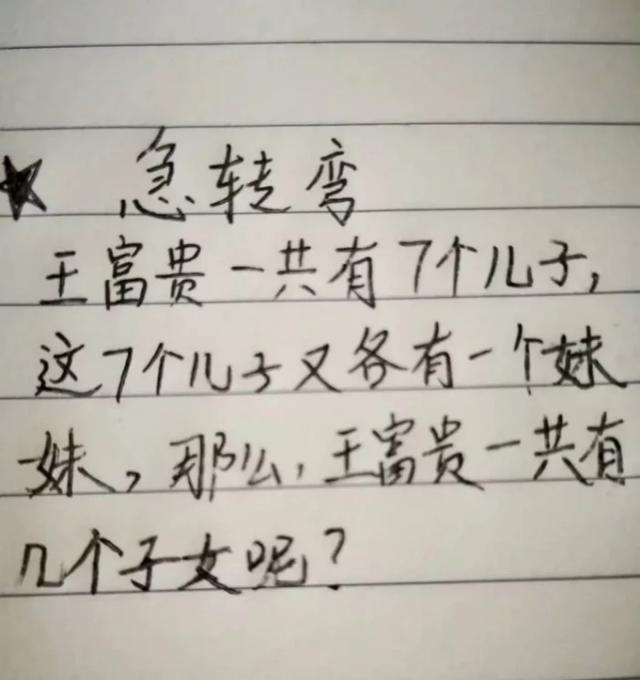 ★ 急转弯
王富贵一共有7个儿子,
这7个儿子又各有一个妹
妹,那么,王富贵一共有
几个子女呢?